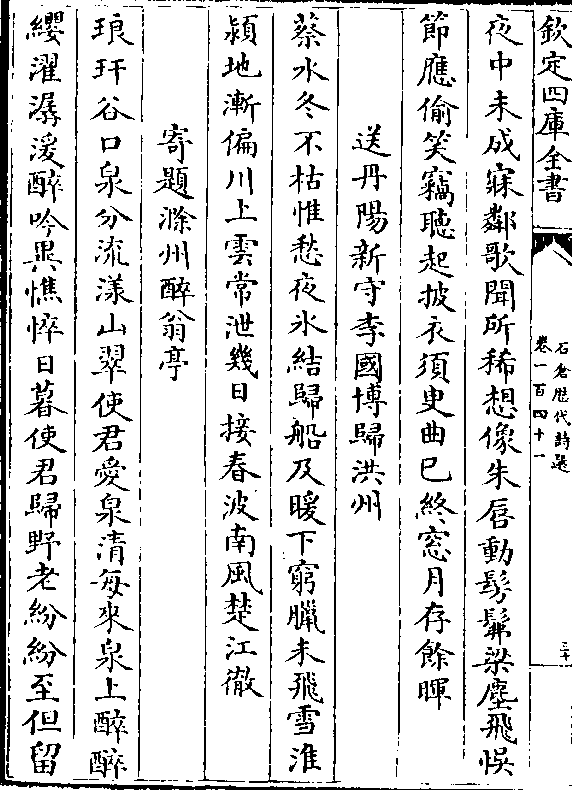 欽定四庫全書
石倉歴代詩選
卷一百四十一
三十
夜中未成寐鄰歌聞所稀想像朱唇動髣髴梁塵飛悞
節應偷笑竊聽起披衣須臾曲已終窓月存餘暉
送丹陽新守李國博歸洪州
蔡水冬不枯惟愁夜氷結歸船及暖下窮臘未飛雪淮
潁地漸偏川上雲常泄幾日接春波南風楚江徹
寄題滁州醉翁亭
琅玕谷口泉分流漾山翠使君愛泉清每來泉上醉醉
纓濯潺湲醉吟異憔悴日暮使君歸野老紛紛至但留